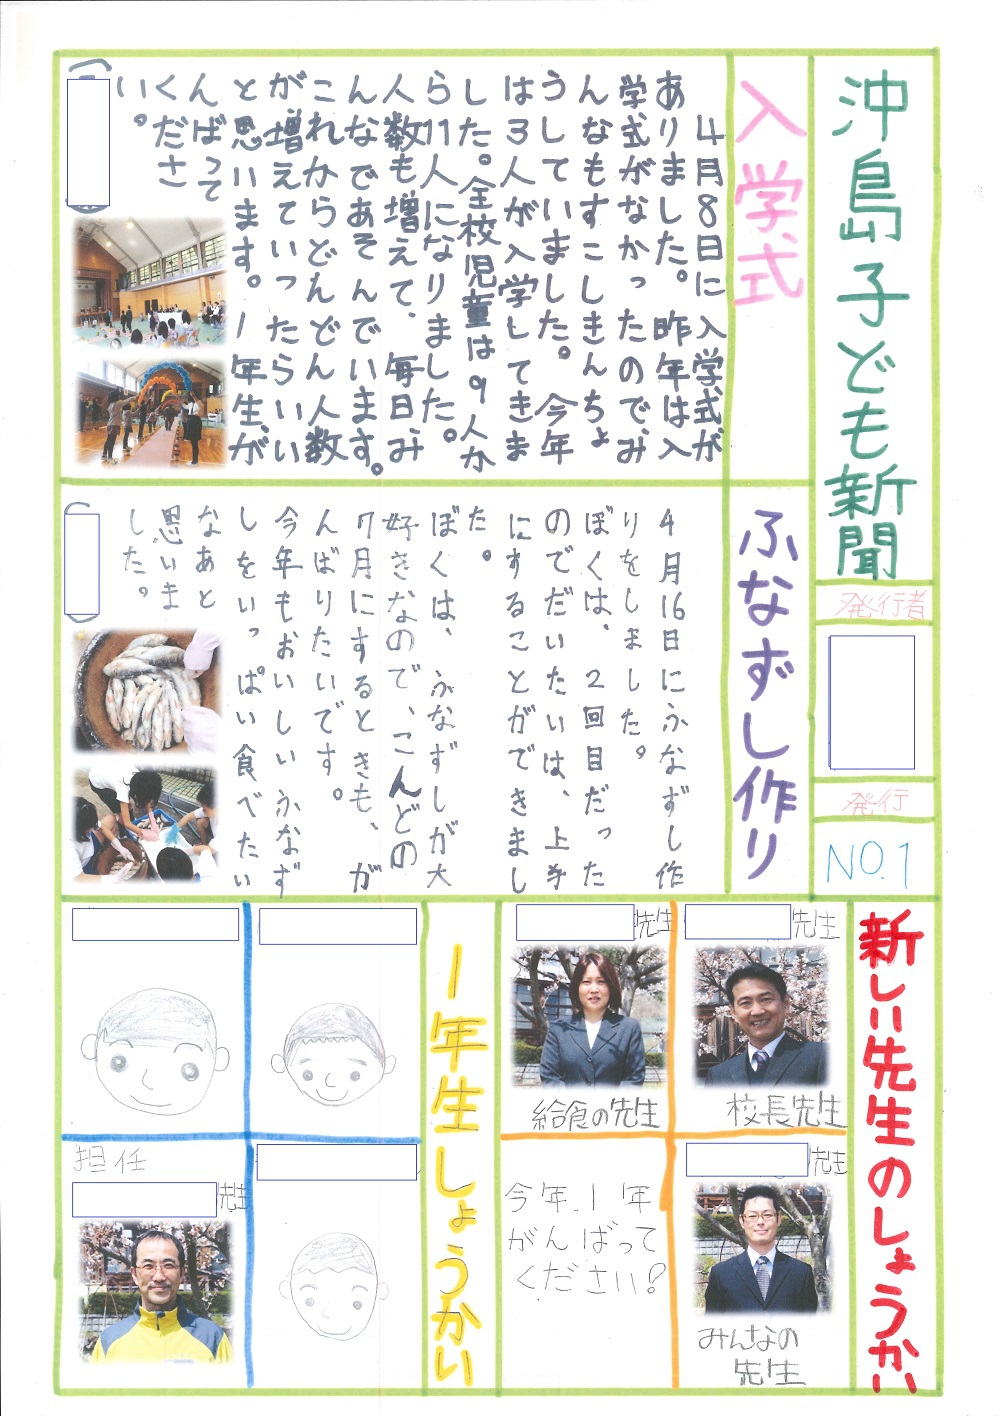 沖島子ども新聞
発行者
発行
NO.1
入学式
4月8日に入学式が
ありました。昨年は入
学式がなかったのでみ
んなもすこしきんちょ
うしていました。今年
は3人が入学してきま
した。全校児童は9人か
ら11人になりました。
人数も増えて、毎日み
んなであそんでいます。
これからどんどん人数
が増えていったらいい
と思います。1年生、が
んばって
くださ
い。
ふなずし作り
4月16日にふなずし作
りをしました。
ぼくは、2回目だった
のでだいたいは、上手
にすることができまし
た。
ぼくは、ふなずしが大
好きなので、こんどの
7月にするときも、が
んばりたいです。
今年もおいしいふなず
しをいっぱい食べたい
なあと
思いま
した。
新しい先生のしょうかい
先生
校長先生
先生
給食の先生
先生
みんなの
先生
今年1年
がんばって
ください!
1年生しょうかい
担任
先生